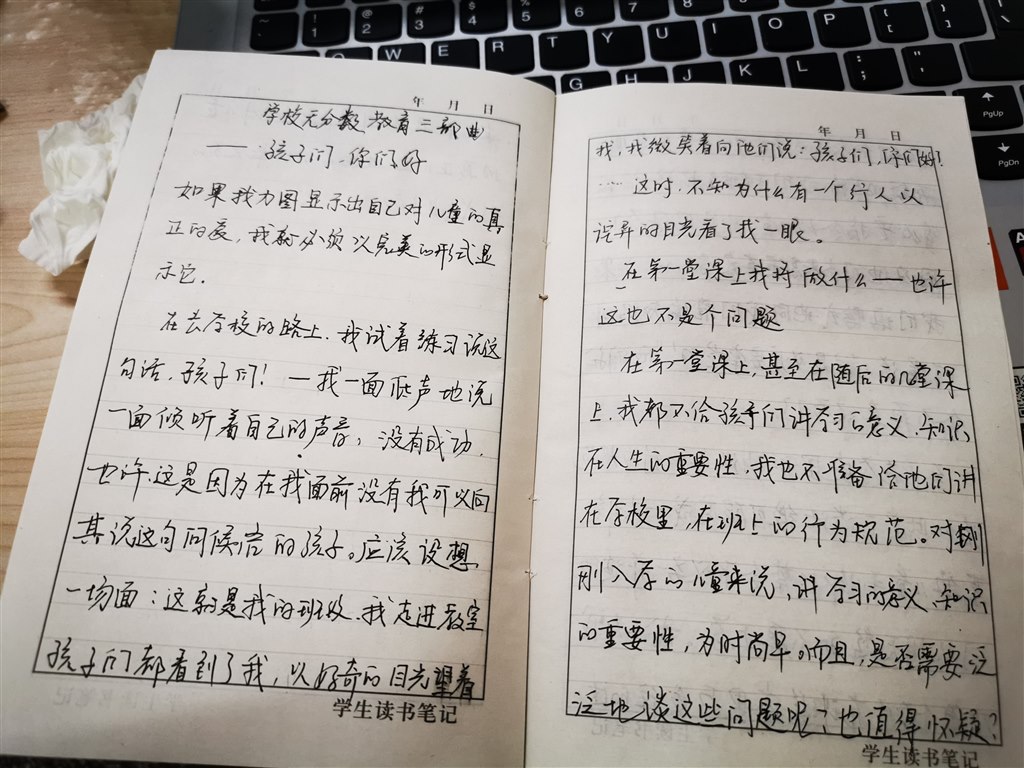 年 月 日
学校无分数教育三部曲
—— 孩子们,你们好
如果我力图显示出自己对儿童的真
正的爱,我就必须以完美的形式显
示它.
在去学校的路上.我试着练习说这
句话,孩子们! —我一面低声地说
一面倾听着自己的声音,没有成功,
也许.这是因为在我面前没有我可以向
其说这句问候语的孩子。应该设想
一场面:这就是我的班级.我走进教室
孩子们都看到了我,以好奇的目光望着
学生读书笔记
年 月 日
我,我微笑着向他们说:孩子们,你们好!
…… 这时,不知为什么有一个行人以
诧异的目光看了我一眼。
在第一堂课上我将做什么——也许
这也不是个问题
在第一堂课上,甚至在随后的几堂课
上.我都不给孩子们讲学习的意义、知识
在人生的重要性,我也不准备给他们讲
在学校里,在班上的行为规范。对刚
刚入学的儿童来说,讲学习的意义、知识
的重要性,为时尚早。而且,是否需要泛
泛地谈这些问题呢?也值得怀疑?
学生读书笔记
@ 2
# 3
$ 4
% 5
6
7
8
9
Q W E R T Y U I O P
G H J K L
PgUp
PgDn